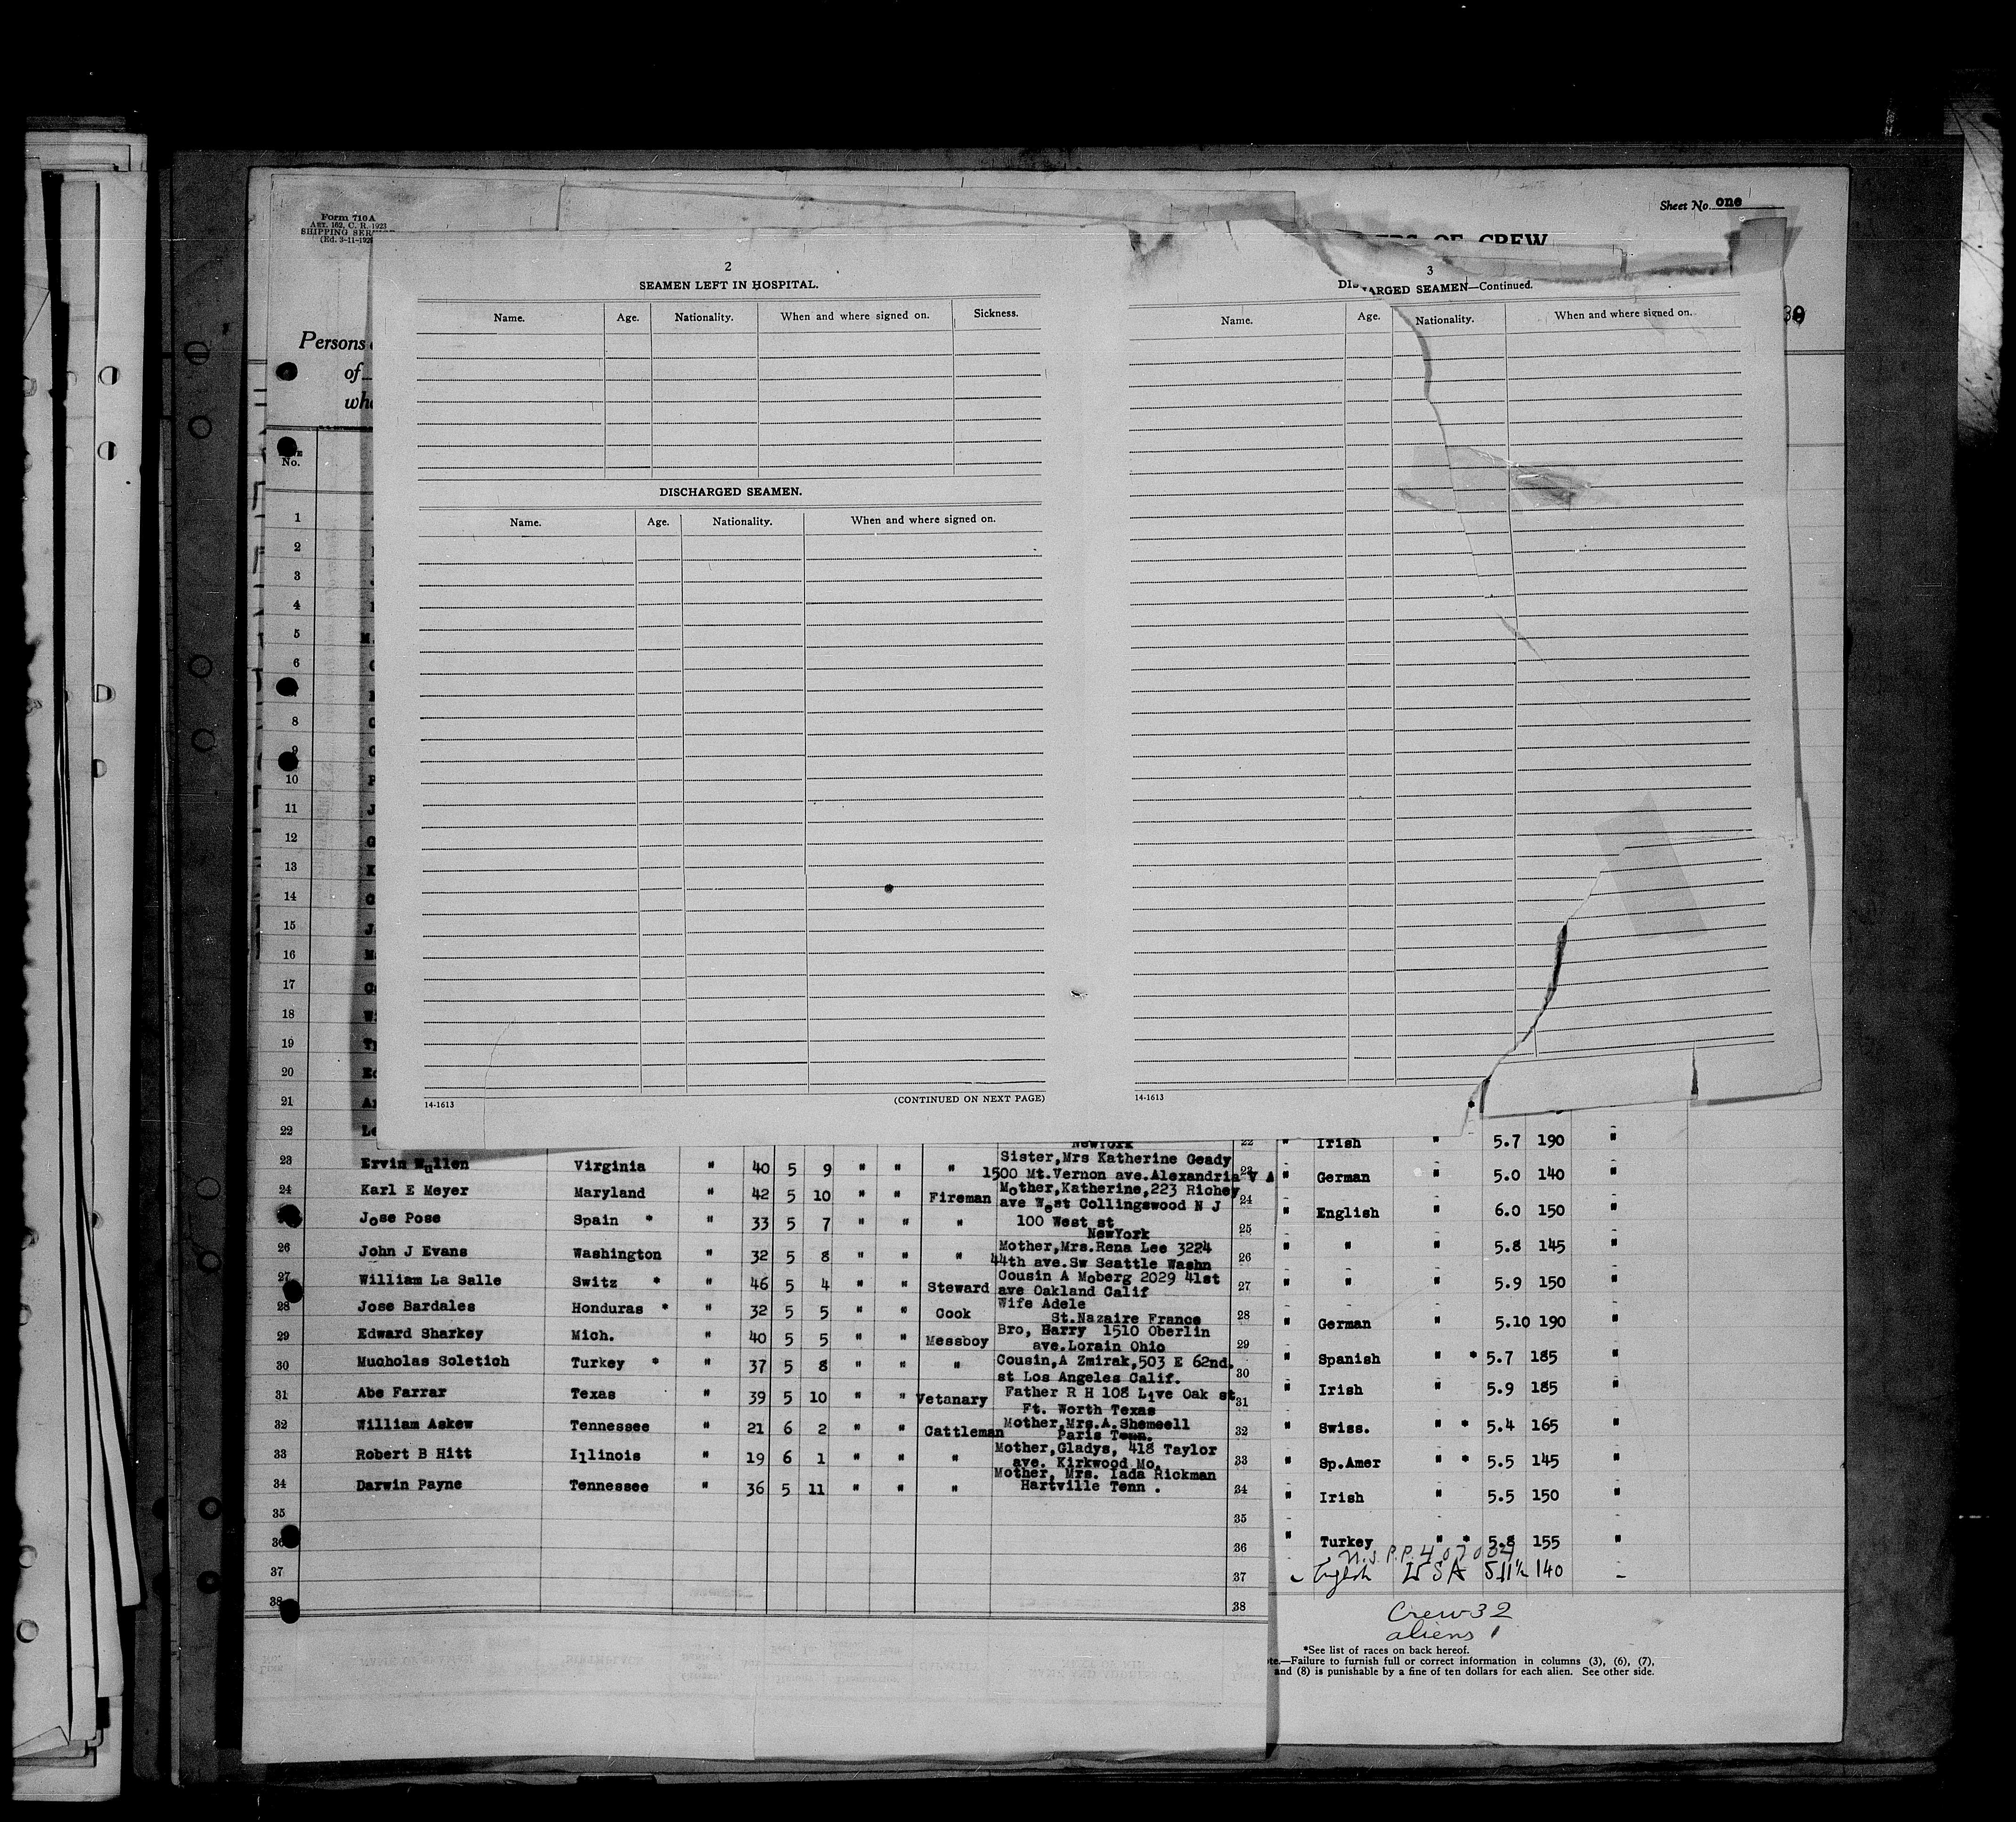 Form 710 A
ART. 162, C. R. 1923
SHIPPING SER
(Ed. 3-11-192
Sheet No. one
OF CREW
Persons
of
who
No.
2
SEAMEN LEFT IN HOSPITAL.
Name. Age. Nationality. When and where signed on. Sickness.
DISCHARGED SEAMEN.
Name. Age. Nationality. When and where signed on.
14-1613
(CONTINUED ON NEXT PAGE)
3
DIS ARGED SEAMEN—Continued.
Name. Age. Nationality. When and where signed on.
14-1613
1
2
3
4
5
6
8
9
10
11
12
13
14
15
16
17
18
19
20
21
22 NewYork
23 Ervin Wullen Virginia " 40 5 9 " " " Sister,Mrs Katherine Geady
1500 Mt.Vernon ave.Alexandria V A
24 Karl E Meyer Maryland " 42 5 10 " " Fireman Mother,Katherine,223 Richey
ave West Collingswood N J
Jose Pose Spain * " 33 5 7 " " " 100 West st
NewYork
26 John J Evans Washington " 32 5 8 " " " Mother,Mrs.Rena Lee 3224
44th ave.Sw Seattle Washn
27 William La Salle Switz * " 46 5 4 " " Steward Cousin A Moberg 2029 41st
ave Oakland Calif
28 Jose Bardales Honduras * " 32 5 5 " " Cook Wife Adele
St.Nazaire France
29 Edward Sharkey Mich. " 40 5 5 " " Messboy Bro, Harry 1510 Oberlin
ave.Lorain Ohio
30 Mucholas Soletich Turkey * " 37 5 8 " " " Cousin,A Zmirak,503 E 62nd.
st Los Angeles Calif.
31 Abe Farrar Texas " 39 5 10 " " Vetanary Father R H 108 Live Oak st
Ft. Worth Texas
32 William Askew Tennessee " 21 6 2 " " Cattleman Mother,Mrs.A.Shemeell
Paris Tenn.
33 Robert B Hitt Illinois " 19 6 1 " " " Mother,Gladys, 418 Taylor
ave. Kirkwood Mo.
34 Darwin Payne Tennessee " 36 5 11 " " " Mother, Mrs. Iada Rickman
Hartville Tenn .
35
36
37
38
22 " Irish " 5.7 190 "
23 " German " 5.0 140 "
24 " English " 6.0 150 "
25 " " " 5.8 145 "
26
27 " " " 5.9 150 "
28 " German " 5.10 190 "
29 " Spanish " * 5.7 185 "
30 " Irish " 5.9 185 "
31
32 " Swiss. " * 5.4 165 "
33 " Sp.Amer " * 5.5 145 "
34 " Irish " 5.5 150 "
35
36 " Turkey " * 5.8 155 "
37 English USA 5.11½ 140
38
Crew 32
aliens 1
*See list of races on back hereof.
te.—Failure to furnish full or correct information in columns (3), (6), (7),
and (8) is punishable by a fine of ten dollars for each alien. See other side.